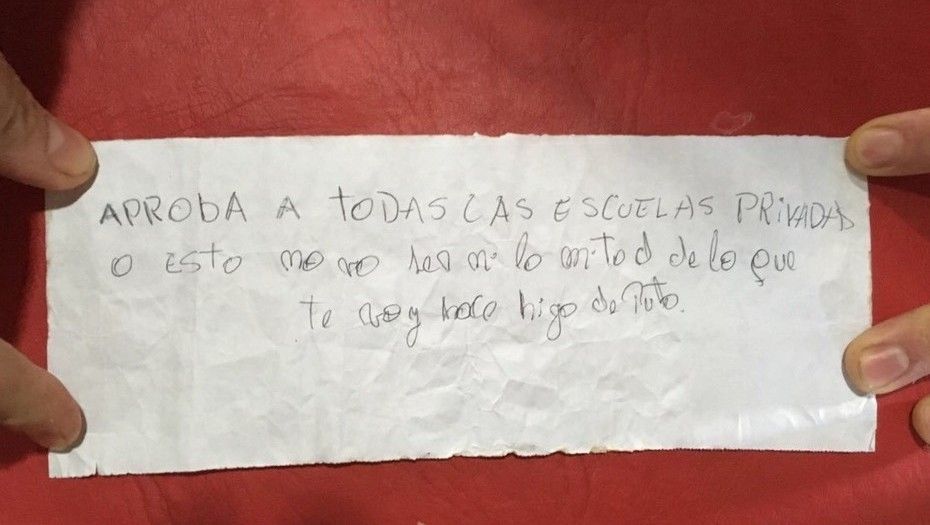 APROBA A TODAS LAS ESCUELAS PRIVADAS
O ESTO no va ser ni la mitad de lo que
te voy hace higo de Puta.